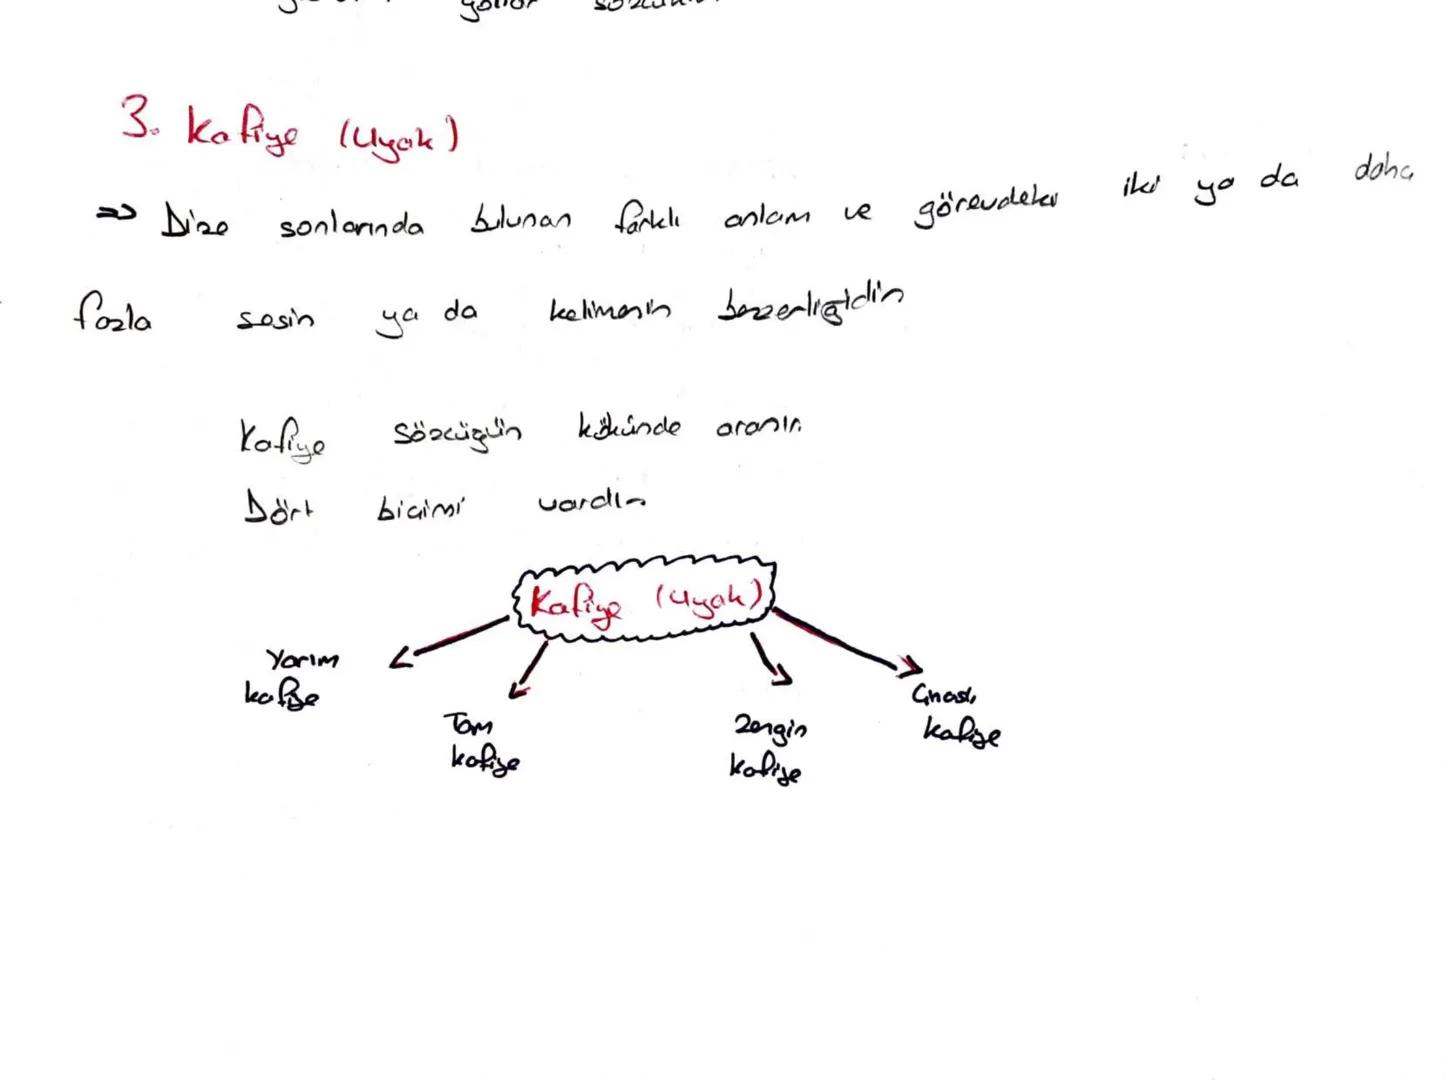 3. Kafiye (Uyak)
⇒ Dize sonlarında bulunan farklı anlam ve görevdeki iki ya da daha
fazla sesin ya da kelimenin benzerliğidir.
Kafiye sözcüğün kökünde aranır.
Dört biçimi vardır.
Kafiye (Uyak)
Yarım
kafiye
Tam
kafiye
Zengin
kafiye
Cinaslı
kafiye